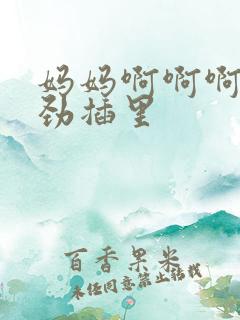 妈妈啊啊啊
劲插里
百香果米
未经同意禁止转载